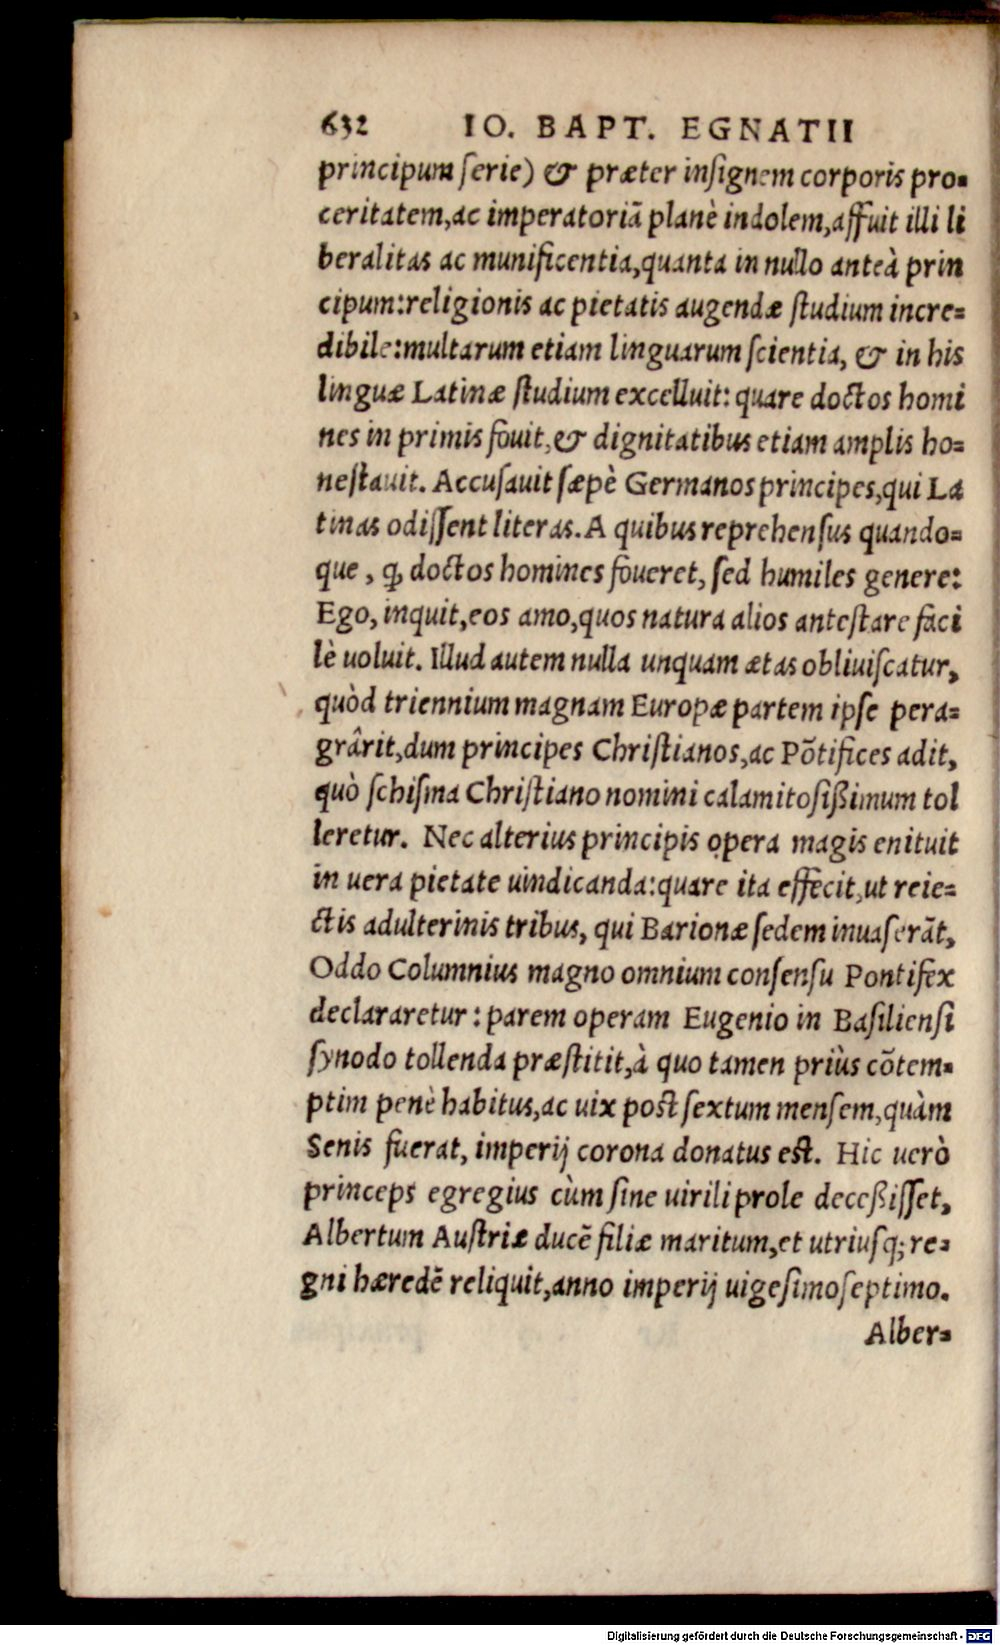 632 IO. BAPT. EGNATII
principum ſerie) & præter inſignem corporis pro-
ceritatem,ac imperatoriā planè indolem,affuit illi li
beralitas ac munificentia,quanta in nullo anteà prin
cipum:religionis ac pietatis augendæ ſtudium incre-
dibile:multarum etiam linguarum ſcientia, & in his
linguæ Latinæ ſtudium excelluit: quare doctos homi
nes in primis fouit,& dignitatibus etiam amplis ho-
neſtauit. Accuſauit ſæpè Germanos principes,qui La
tinas odiſſent literas. A quibus reprehenſus quando-
que, ꝙ doctos homines foueret, ſed humiles genere:
Ego, inquit,eos amo,quos natura alios anteſtare faci
lè uoluit. Illud autem nulla unquam ætas obliuiſcatur,
quòd triennium magnam Europæ partem ipſe pera-
grârit,dum principes Chriſtianos,ac Põtifices adit,
quò ſchiſma Chriſtiano nomini calamitoſißimum tol
leretur. Nec alterius principis opera magis enituit
in uera pietate uindicanda:quare ita effecit,ut reie-
ctis adulterinis tribus, qui Barionæ ſedem inuaſerãt,
Oddo Columnius magno omnium conſenſu Pontifex
declararetur: parem operam Eugenio in Baſilienſi
ſynodo tollenda præſtitit,à quo tamen priùs cõtem-
ptim penè habitus,ac uix poſt ſextum menſem,quàm
Senis fuerat, imperij corona donatus eſt. Hic uerò
princeps egregius cùm ſine uirili prole deceßiſſet,
Albertum Auſtriæ ducẽ filiæ maritum,et utriuſq; re-
gni hæredẽ reliquit,anno imperij uigeſimoſeptimo.
Alber-
Digitalisierung gefördert durch die Deutsche Forschungsgemeinschaft - DFG